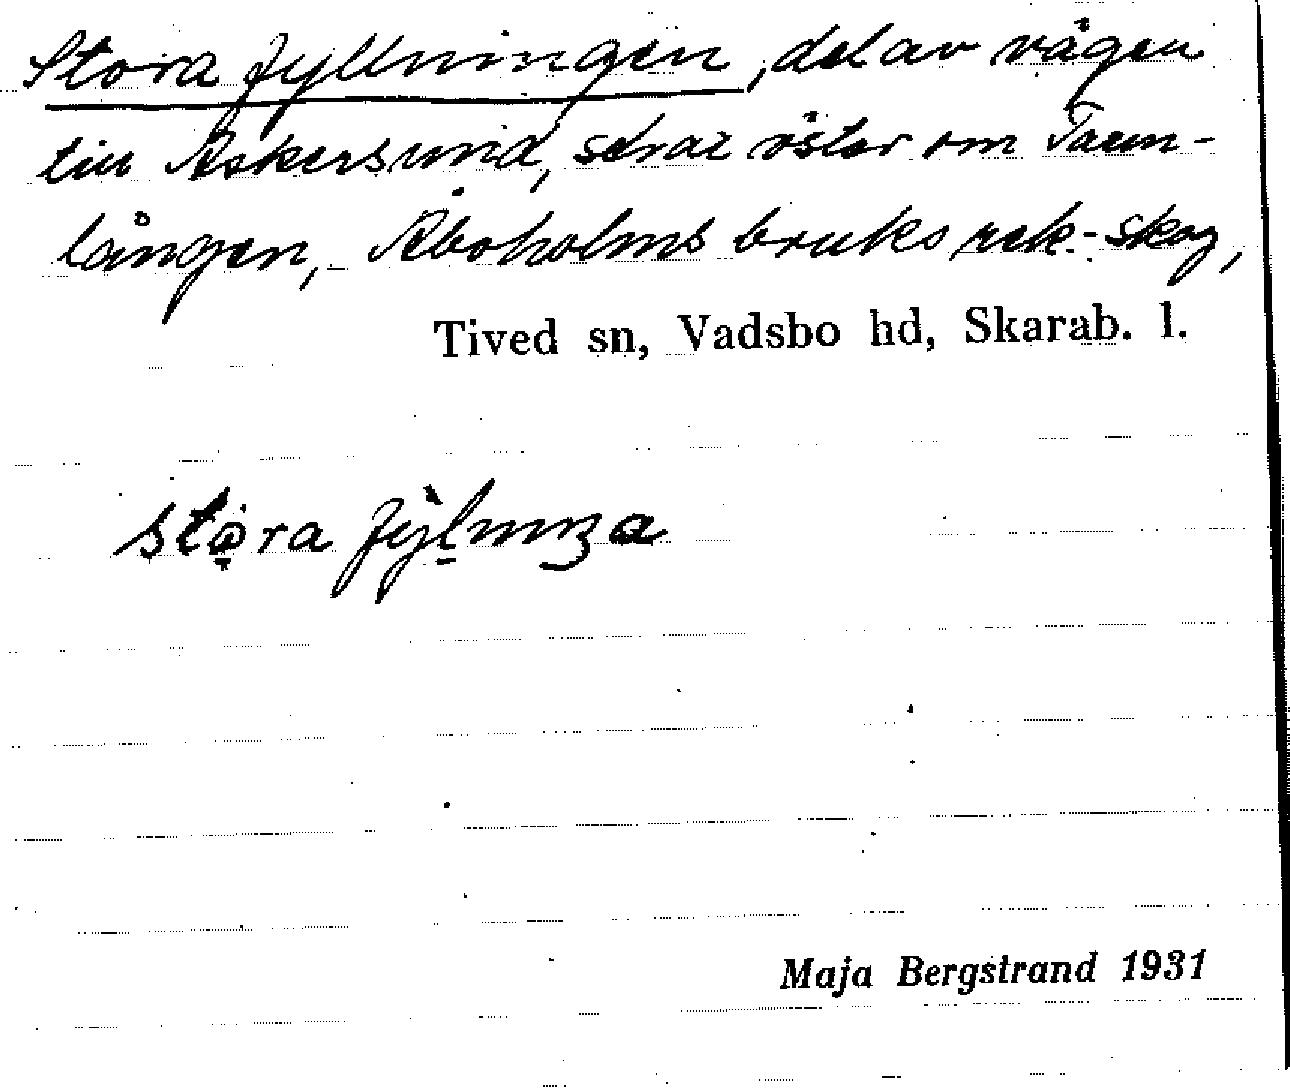 Stora fyllningen, del av vägen
till Askersund, strax öster om Tærn-
lången, Aboholms bruks rek.-skog,
Tived sn, Vadsbo hd, Skarab. l.
stọ̀ra fỳlnıŋa
Maja Bergstrand 1931